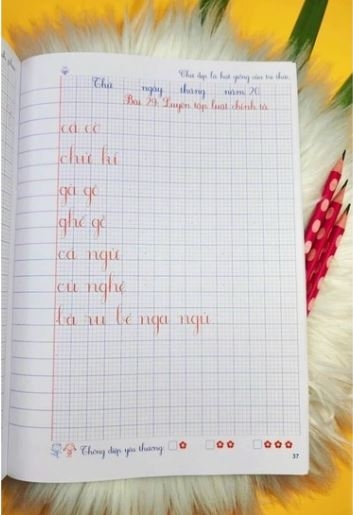 Chữ đẹp là hạt giống của tri thức.
Thứ ngày tháng năm 20
Bài 29: Luyện tập luật chính tả
cá cờ
chữ kí
gà gô
ghế gỗ
cá ngừ
củ nghệ
bà ru bé nga ngủ
Thông điệp yêu thương:
37